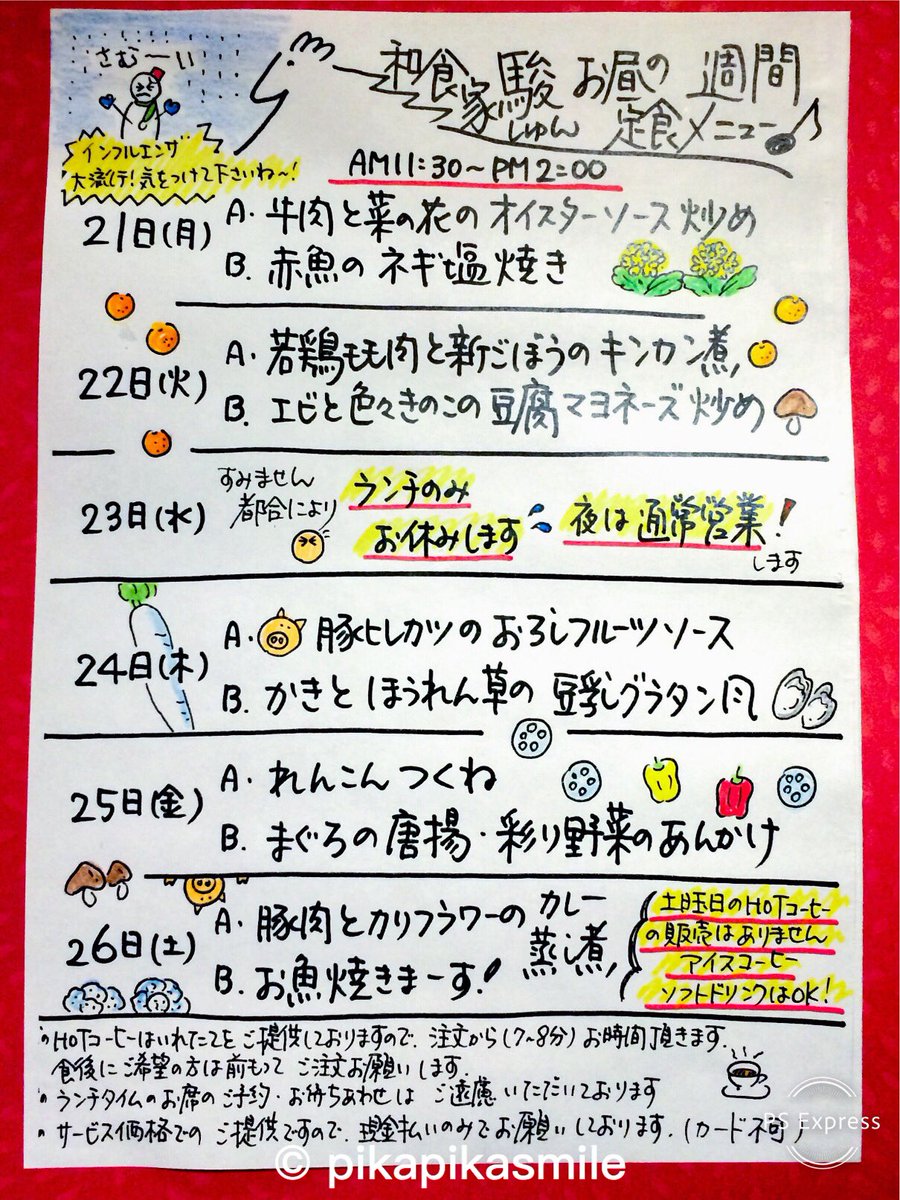 さむ〜い
インフルエンザ
大流行!気をつけて下さいね〜!
和食家 駿 お昼の 週間
しゅん 定食メニュー♪
AM11:30〜PM2:00
21日(月)
A. 牛肉と菜の花の オイスターソース炒め
B. 赤魚の ネギ塩焼き
22日(火)
A. 若鶏もも肉と新ごぼうの キンカン煮
B. エビと色々きのこの 豆腐マヨネーズ炒め
23日(水)
すみません
都合により
ランチのみ
お休みします
夜は 通常営業!
します
24日(木)
A. 豚ヒレカツの おろしフルーツソース
B. かきと ほうれん草の 豆乳グラタン風
25日(金)
A. れんこん つくね
B. まぐろの 唐揚・彩り野菜のあんかけ
26日(土)
A. 豚肉とカリフラワーの カレー
蒸し煮
B. お魚焼きまーす!
土曜日のHOTコーヒー
の販売はありません
アイスコーヒー
ソフトドリンクはOK!
HOTコーヒーはいれたてをご提供しておりますので、注文から(7〜8分)お時間頂きます。
食後にご希望の方は前もって ご注文お願いします。
ランチタイムのお席のご予約・お待ちあわせは ご遠慮いただいております
サービス価格での ご提供ですので、現金払いのみでお願いしております。(カード不可)
PS Express
© pikapikasmile